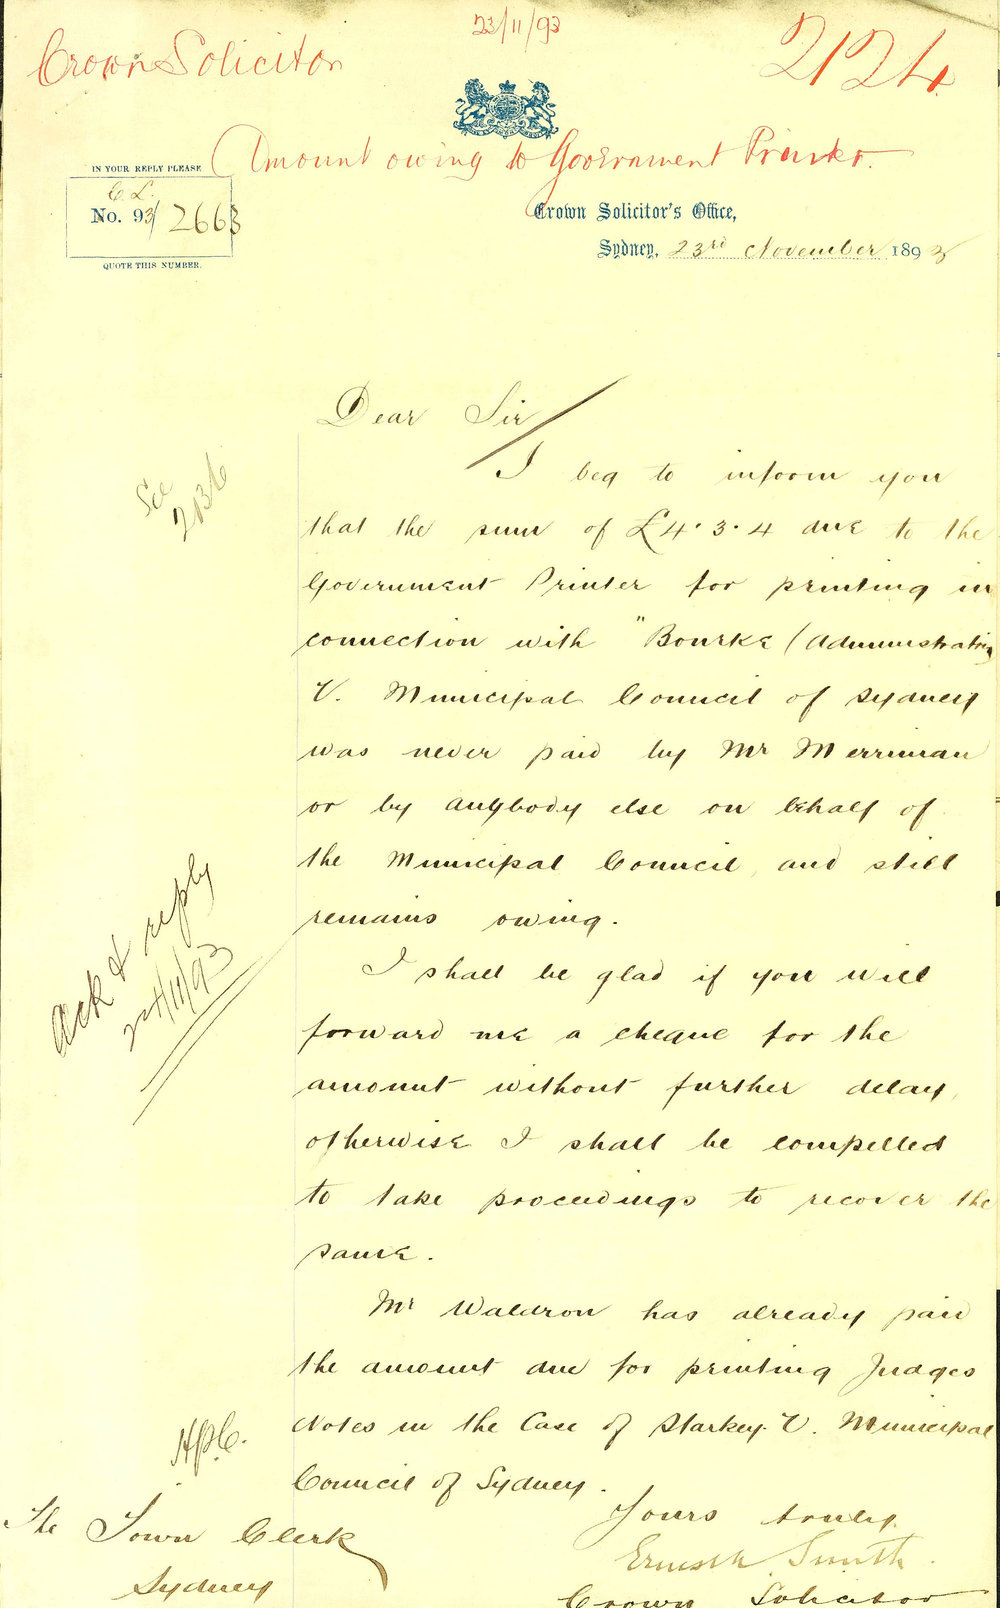 23/11/93
Crown Solicitor
2124
Amount owing to Government Printer.
IN YOUR REPLY PLEASE
C.L.
No. 93/2663
QUOTE THIS NUMBER.
Crown Solicitor's Office,
Sydney, 23rd November 1893
Dear Sir
I beg to inform you
that the sum of £4.3.4 due to the
Government Printer for printing in
connection with "Bourke (Administratrix
V. Municipal Council of Sydney
was never paid by Mr Merriman
or by anybody else on behalf of
the Municipal Council, and still
remains owing.
I shall be glad if you will
forward me a cheque for the
amount without further delay,
otherwise I shall be compelled
to take proceedings to recover the
same.
Mr Waldron has already paid
the amount due for printing Judges
Notes in the Case of Starkey V. Municipal
Council of Sydney.
Yours truly
Ernest Smith.
Crown Solicitor
The Town Clerk
Sydney
See
2136
Ack & reply
24/11/93